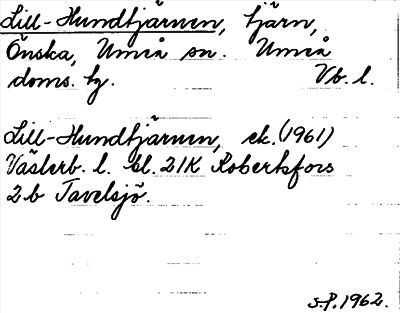 Lill-Hundtjärnen, tjärn,
Önska, Umeå sn. Umeå
doms. tg. Vb. l.
Lill-Hundtjärnen, ek. (1961)
Västerb. l. bl. 21K Robertsfors
2b Tavelsjö.
S.P. 1962.